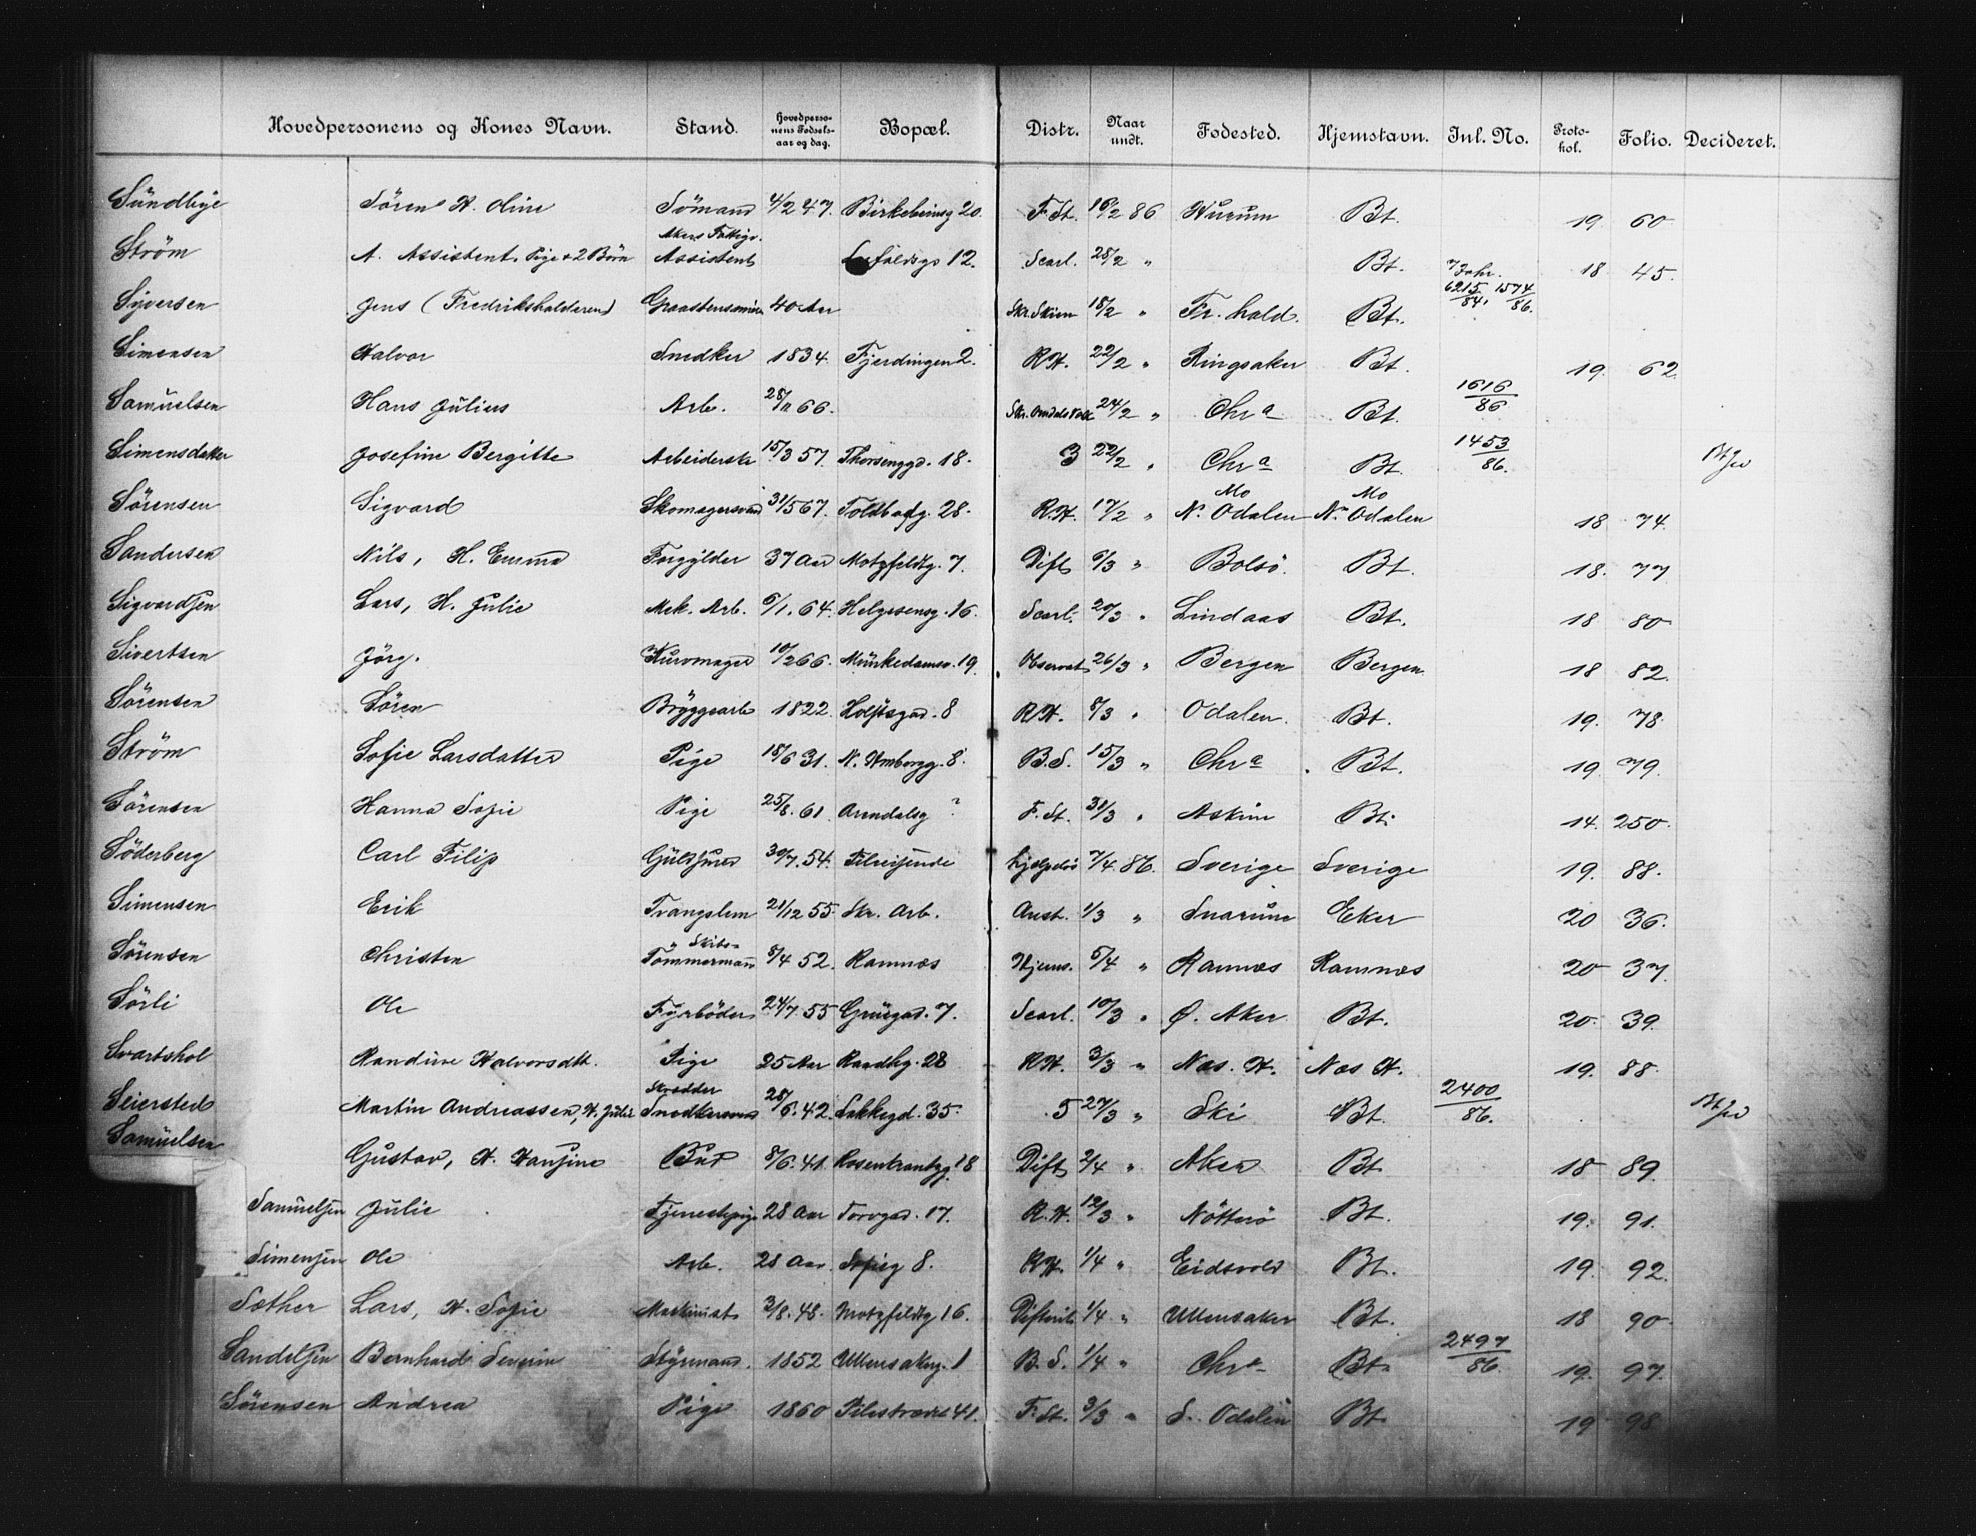 Hovedpersonens og Kones Navn. Stand. Hovedperso-nens Fødsels-aar og dag. Bopæl. Distr. Naar undt. Fødested. Hjemstavn. Inl. No. Proto-kol. Folio. Decideret.
Sundbye Sören H. Oline Sömand 4/2 47. Birkebeinsg 20. F. St. 16/2 86 Hurum Bt. 19. 60
Ström A. Assistent, Pige + 2 Börn Akers Fattigv. Assistent 12. Scarl. 28/2 " Bt. 18 45.
Syversen Jens (Fredrikshalderen) Graastensminer 40 Aar Skr. Skien 18/2 " Fr. hald. Bt. 6215/84, 1574/86.
Simensen Halvor Snedker 1834. Fjerdingen 2. R.H. 22/2 " Ringsaker Bt. 19. 62.
Samuelsen Hans Julius Arb. 28/11 66. 24/2 " Chra Bt. 1616/86
Simensdatter Josefine Bergitte Arbeiderske 15/3 57. Thorsenggd. 18. 3 22/2 " Chra Bt. 1453/86. Bt
Sørensen Sigvard Skomagersvend 31/5 67. Toldbodg. 28. R.H. 17/2 " Mo N. Odalen Mo N. Odalen 18 74.
Sandersen Nils, H. Emma Forgylder 37 Aar Motzfeldtg. 7. Dift 6/3 " Bolsö. Bt. 18. 77
Sigvardsen Lars, H. Julie Mek. Arb. 6/1. 64. Helgesensg. 16. Scarl. 20/3 " Lindaas Bt. 18 80
Sivertsen Jörg. Kurvmager 10/2 66. Munkedamsv. 19. Observat. 26/3 " Bergen Bergen 18 82.
Sörensen Sören Bryggearb 1822. Holstsgad. 8 R.H. 8/3 " Odalen. Bt. 19. 78.
Ström Sofie Larsdatter Pige 18/6 31. N. Hmbergg. 8. B.S. 15/3 " Chra Bt. 19. 79.
Sörensen Hanna Sofie Pige 25/8. 61. Arendalsg ? F. St. 31/3 " Askim Bt. 14. 250.
Söderberg Carl Filip Guldsmed 30/7. 54. Tilreisende 7/4. 86. Sverige Sverige 19. 88.
Simensen Erik Tvangslem 21/12 55. Skr. Arb. Anst. 1/3 " Snarum Eker 20 36.
Sörensen Christen Skibs-Tömmermann 8/4 52. Ramnæs Hjems. 6/4 " Ramnæs Ramnæs 20 37.
Sörli Ole Fyrböder 24/7 55 Grünegad. 7. Scarl. 10/3 " Ø. Aker Bt. 20. 39.
Svartshol Randine Halvorsdtt. Pige 25 Aar Raadhg. 28 R.H. 3/3 " Næs. H. Næs H. 19. 88.
Seiersted Martin Andreassen, H. Julie Skrædder Snedkersvend 28/6. 42. Lakkegd. 35. 5 27/3 " Ski Bt. 2400/86. Bt
Samuelsen Gustav, H. Hansine Bud 8/6. 41. Rosenkrantzg. 18 Dift 2/4 " Aker Bt 18 89.
Samuelsen Julie Tjenestepige 28 Aar Torvgad. 17. R.H. 12/3 " Nötterö Bt. 19. 91.
Simensen Ole Arb. 28 Aar. Sofieg 8. R.H. 1/4 " Eidsvold Bt. 19. 92.
Sæther Lars, H. Sofie Maskinist 3/8. 48. Motzfeldtg 16. Difterit. 1/4 " Ullensaker Bt. 18 90.
Sandelsen Bernhard Severin Styrmand. 1852 Ullensakerg. 1 B.S. 1/4 " Chra Bt. 2497/86. 19. 97.
Sörensen Andrea Pige 1860 Pilestrædet 41. F. St. 3/3 " S. Odalen Bt. 19 98